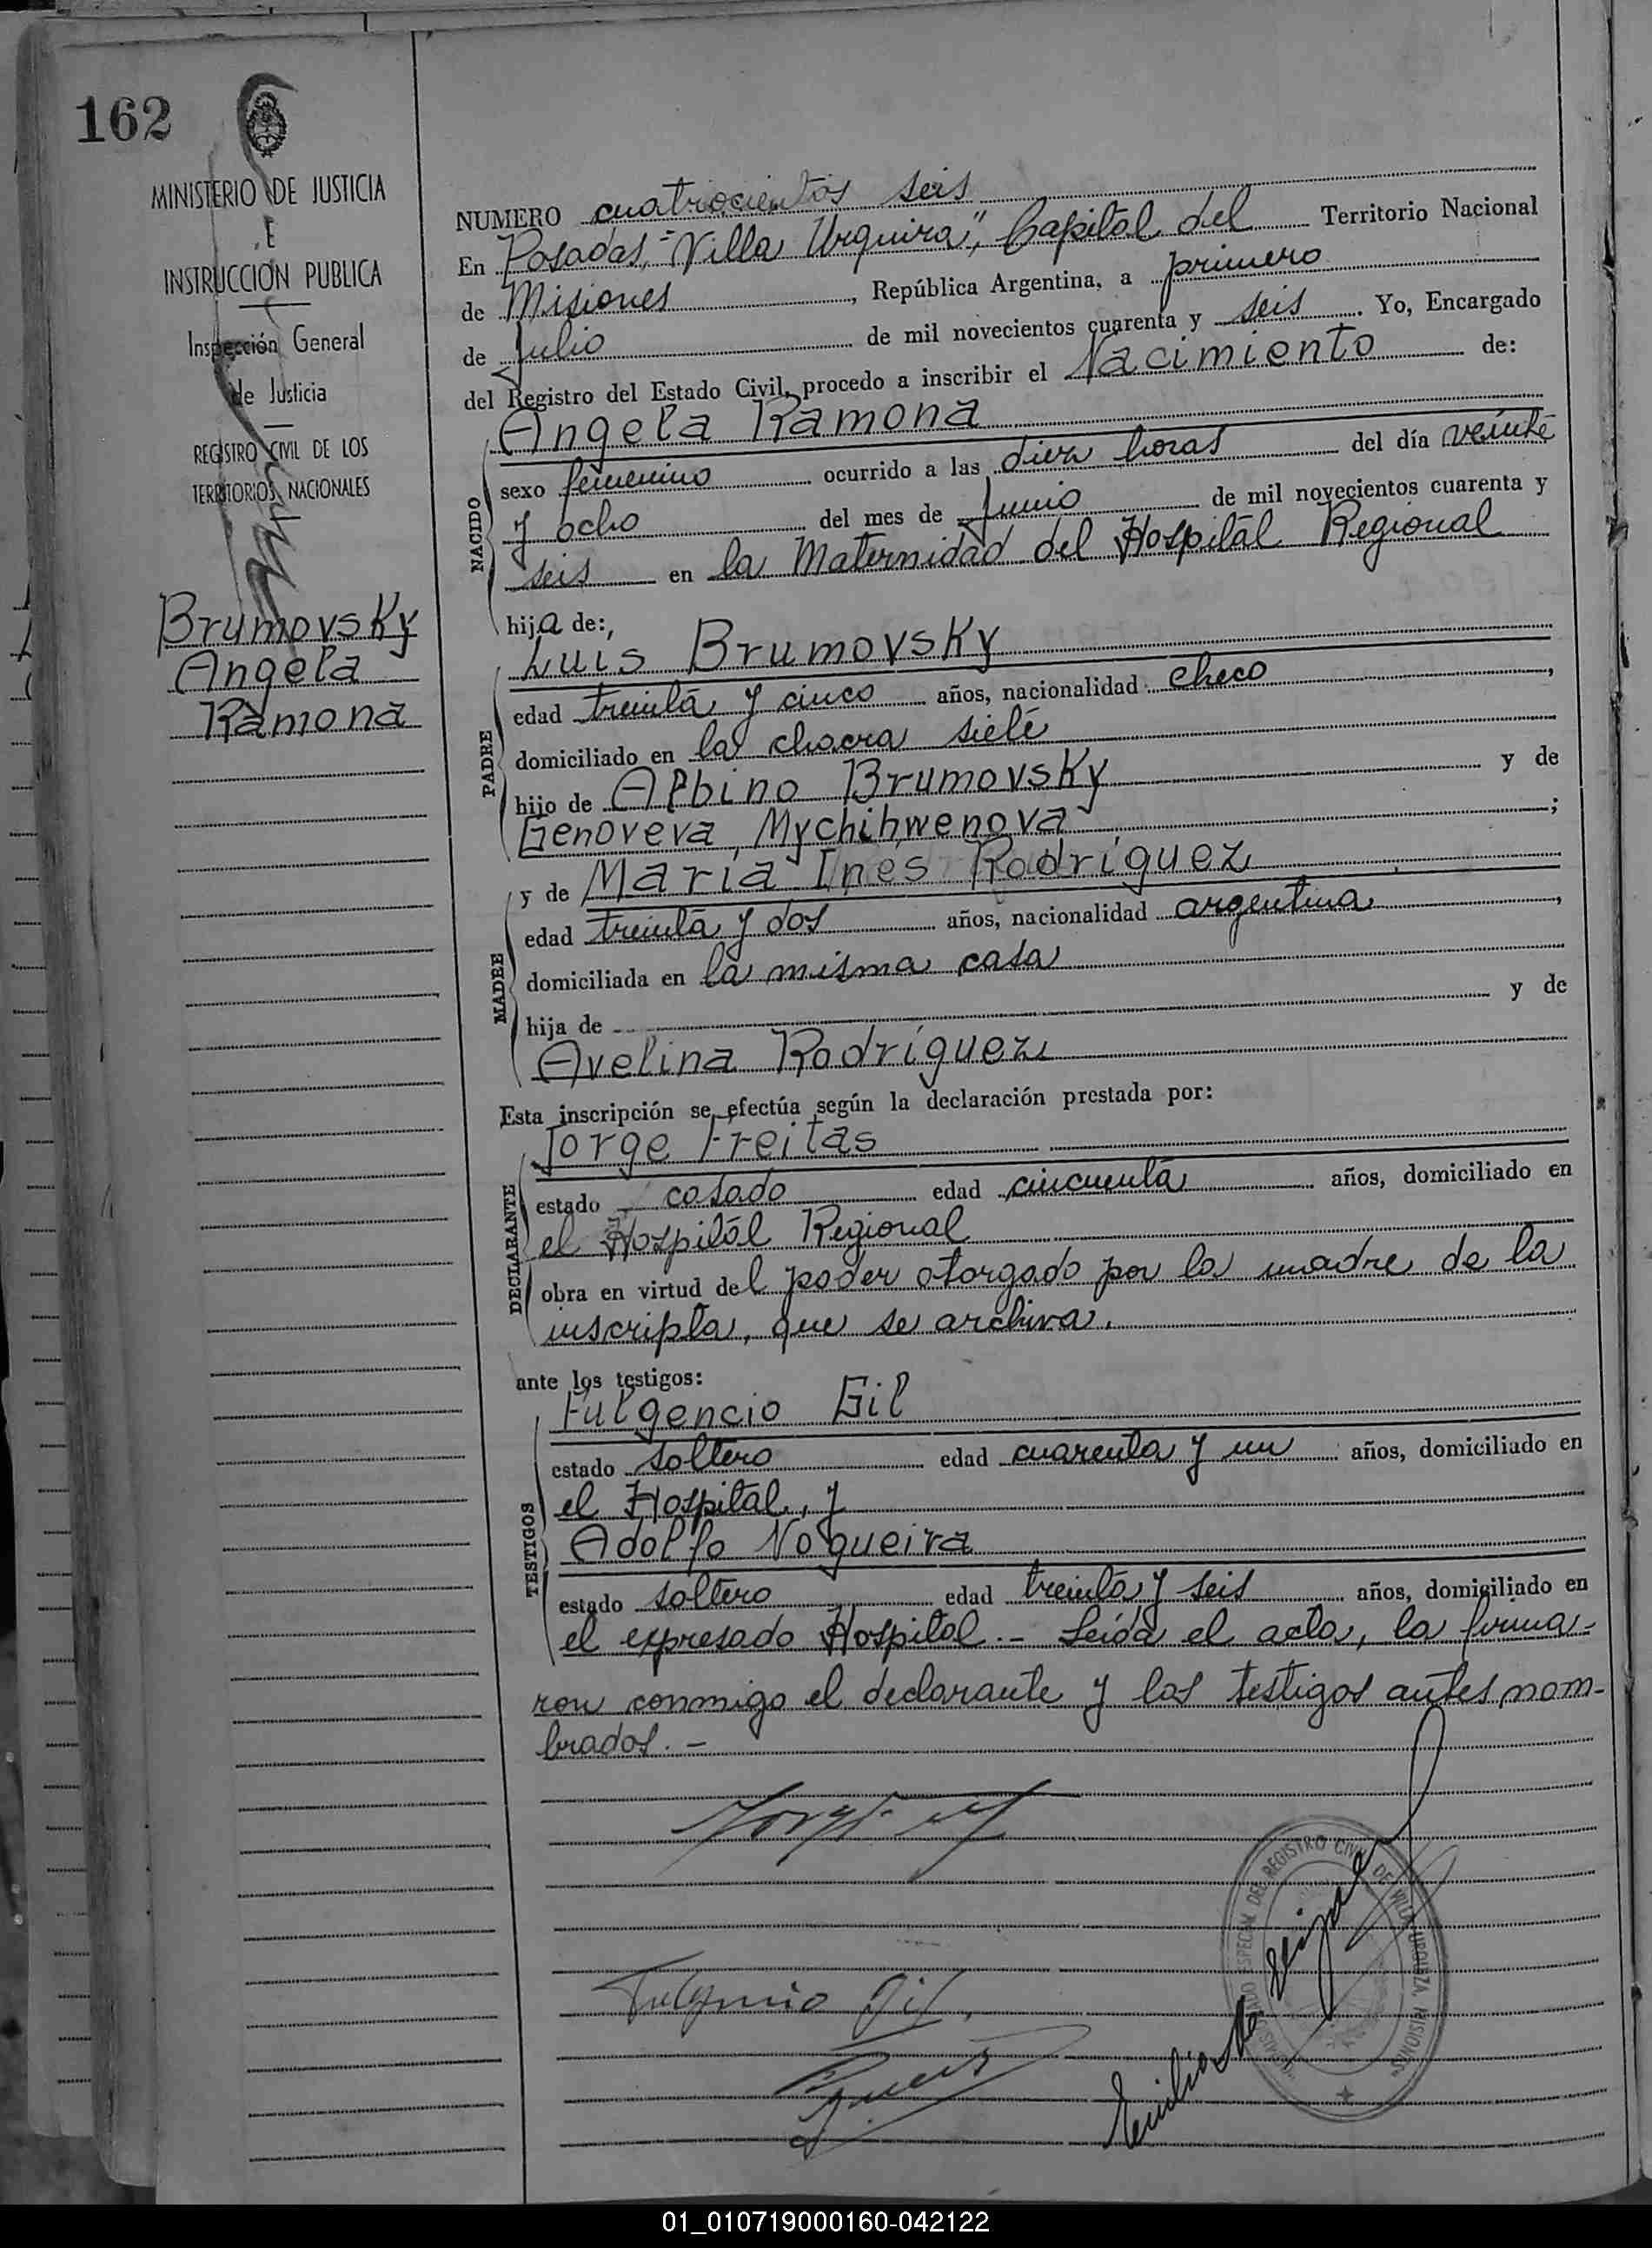 162
MINISTERIO DE JUSTICIA
E
INSTRUCCION PUBLICA
Inspección General
de Justicia
REGISTRO CIVIL DE LOS
TERRITORIOS NACIONALES
Brumovsky
Angela
Ramona
NUMERO cuatrocientos seis
En Posadas, "Villa Urquiza", Capital del Territorio Nacional
de Misiones, República Argentina, a primero
de Julio de mil novecientos cuarenta y seis. Yo, Encargado
del Registro del Estado Civil, procedo a inscribir el Nacimiento de:
NACIDO
Angela Ramona
sexo femenino ocurrido a las diez horas del día veinte
y ocho del mes de Junio de mil novecientos cuarenta y
seis en la Maternidad del Hospital Regional
hija de:
PADRE
Luis Brumovsky
edad treinta y cinco años, nacionalidad checo,
domiciliado en la chacra siete
hijo de Albino Brumovsky y de
Genoveva Mychihwenova;
MADRE
y de María Inés Rodríguez
edad treinta y dos años, nacionalidad argentina,
domiciliada en la misma casa
hija de y de
Avelina Rodríguez
Esta inscripción se efectúa según la declaración prestada por:
DECLARANTE
Jorge Freitas
estado casado edad cincuenta años, domiciliado en
el Hospital Regional
obra en virtud del poder otorgado por la madre de la
inscripta, que se archiva.
ante los testigos:
TESTIGOS
Fulgencio Gil
estado soltero edad cuarenta y un años, domiciliado en
el Hospital, y
Adolfo Nogueira
estado soltero edad treinta y seis años, domiciliado en
el expresado Hospital.- Leída el acta, la firma-
ron conmigo el declarante y los testigos antes nom-
brados.-
Jorge
DEL REGISTRO CIVIL DE VILLA URQUIZA MISIONES
Fulgencio Gil
Emilio
01_010719000160-042122